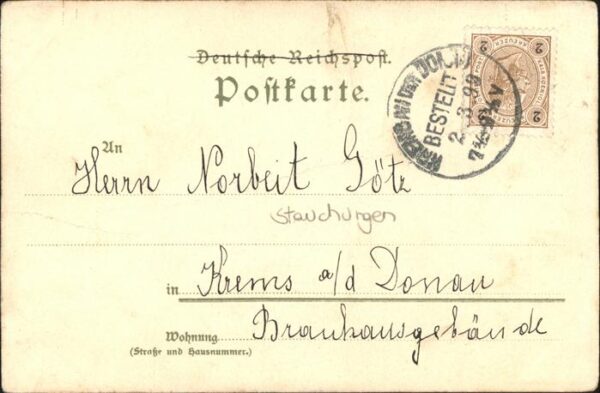 Deutsche Reichspost.
Postkarte.
KREMS AN DER DONAU
BESTELLT
2.3.99
2 KREUZER 2
An
Herrn Norbert Götz
Stauchungen
in Krems a/d Donau
Wohnung Brauhausgebäude
(Straße und Hausnummer.)